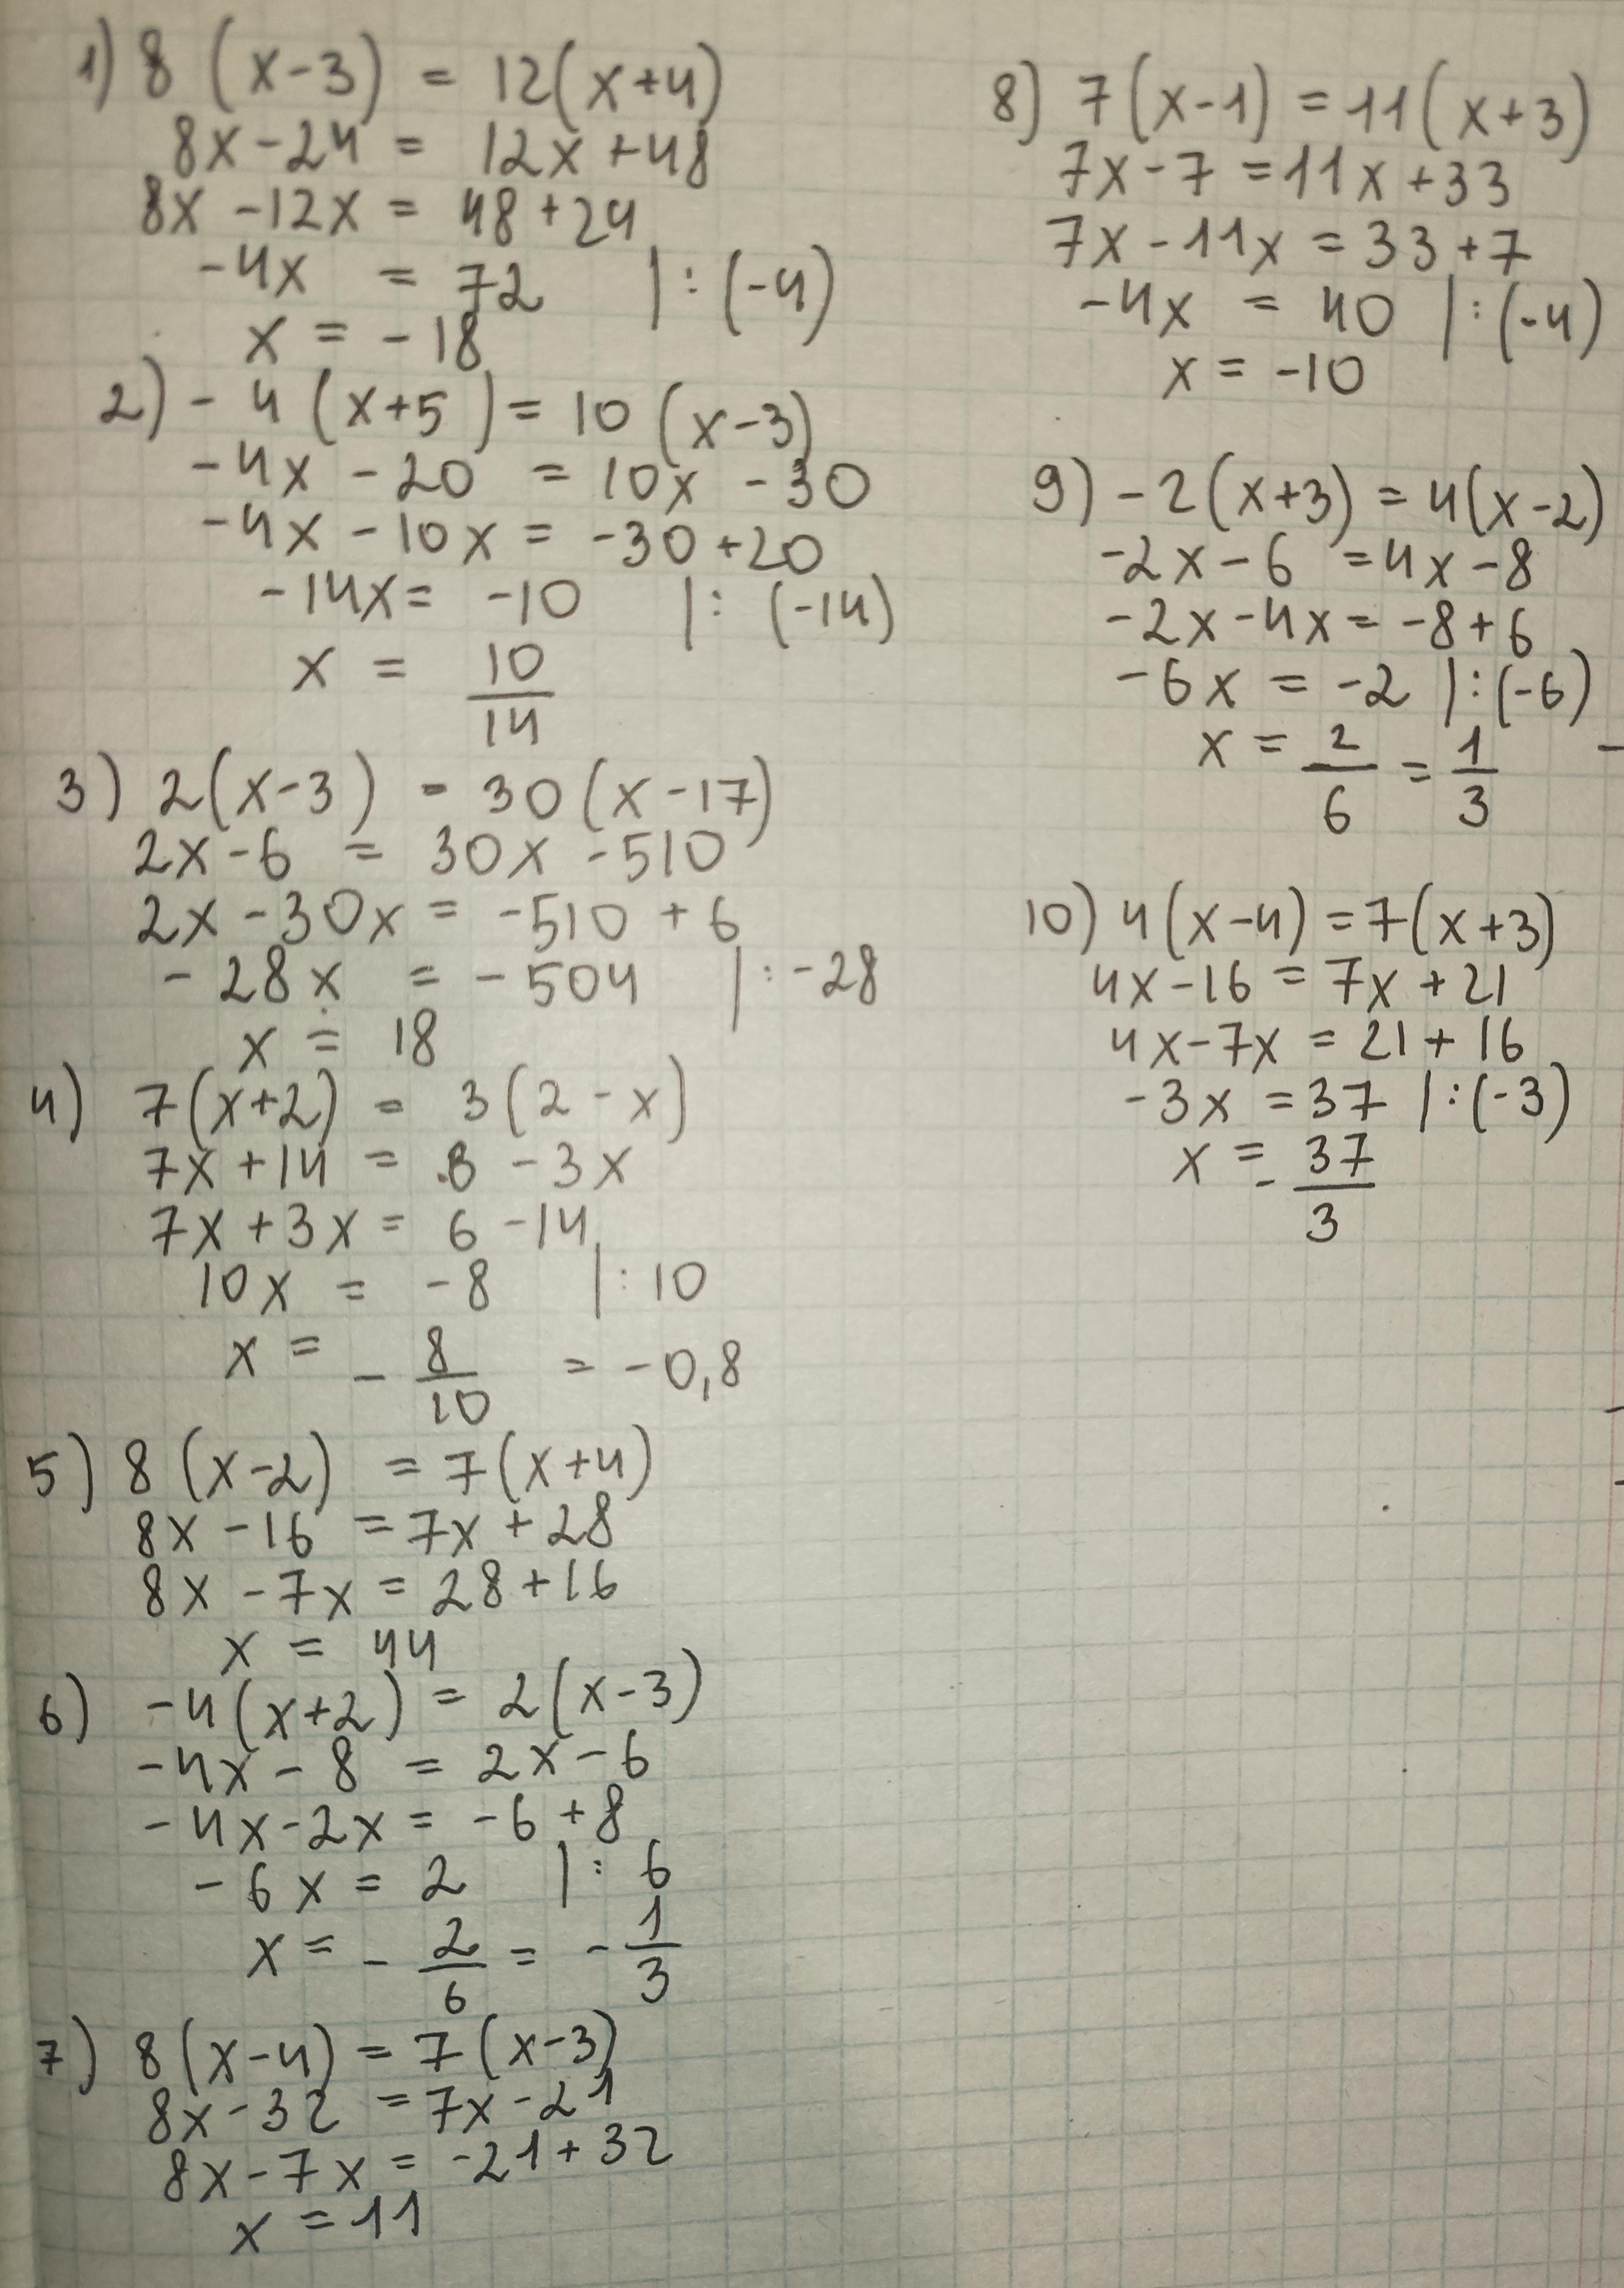 1) 8 (x-3) = 12(x+4)
8x-24 = 12x+48
8x-12x = 48+24
-4x = 72 |:(-4)
x = -18
2) -4(x+5) = 10(x-3)
-4x-20 = 10x-30
-4x-10x = -30+20
-14x = -10 |:(-14)
x = 10/14
3) 2(x-3) = 30(x-17)
2x-6 = 30x-510
2x-30x = -510+6
-28x = -504 |:-28
x = 18
4) 7(x+2) = 3(2-x)
7x+14 = 6-3x
7x+3x = 6-14
10x = -8 |:10
x = -8/10 = -0,8
5) 8(x-2) = 7(x+4)
8x-16 = 7x+28
8x-7x = 28+16
x = 44
6) -4(x+2) = 2(x-3)
-4x-8 = 2x-6
-4x-2x = -6+8
-6x = 2 |:6
x = -2/6 = -1/3
7) 8(x-4) = 7(x-3)
8x-32 = 7x-21
8x-7x = -21+32
x = 11
8) 7(x-1) = 11(x+3)
7x-7 = 11x+33
7x-11x = 33+7
-4x = 40 |:(-4)
x = -10
9) -2(x+3) = 4(x-2)
-2x-6 = 4x-8
-2x-4x = -8+6
-6x = -2 |:(-6)
x = 2/6 = 1/3
10) 4(x-4) = 7(x+3)
4x-16 = 7x+21
4x-7x = 21+16
-3x = 37 |:(-3)
x = -37/3